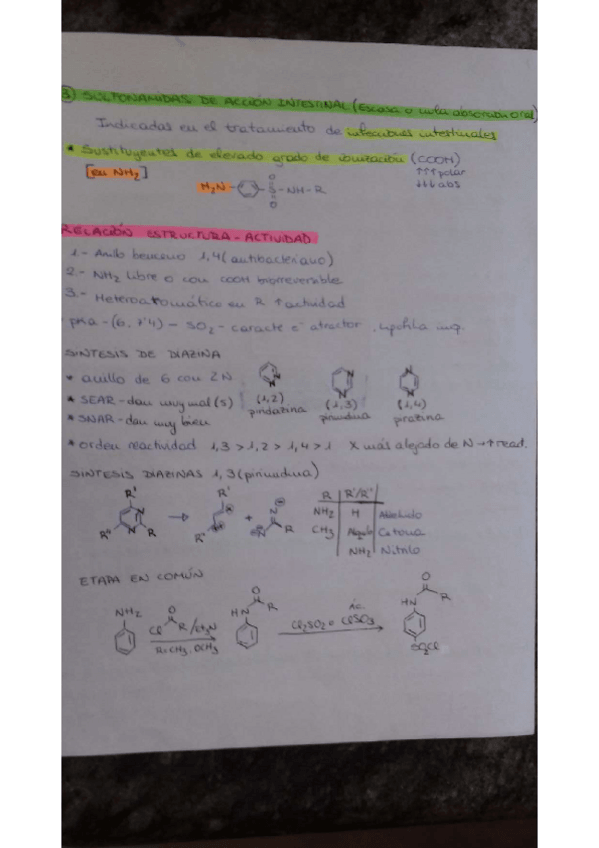 3) SULFONAMIDAS DE ACCIÓN INTESTINAL (Escasa o nula absorción oral)
Indicadas en el tratamiento de infecciones intestinales
* Sustituyentes de elevado grado de ionización (COOH)
[en NH2] ↑↑↑polar
↓↓↓abs
H2N- -S-NH-R
O
O
RELACIÓN ESTRUCTURA - ACTIVIDAD
1.- Anillo benceno 1,4 (antibacteriano)
2.- NH2 libre o con COOH biorreversible
3.- Heteroaromático en R ↑actividad
pKa-(6, 7'4) - SO2- caracte e- atractor
SINTESIS DE DIAZINA
* anillo de 6 con 2N
(1,2) (1,3) (1,4)
* SEAR-dan muy mal (S) piridazina pirimidina pirazina
* SNAR-dan muy bien
* orden reactividad 1,3 > 1,2 > 1,4 > 1 X más alejado de N → ↑ react.
SINTESIS DIAZINAS 1,3 (pirimidina)
R' R'
N N R R" → R" + N N R
R R'/R''
NH2 H Aldehído
CH3 Alquilo Cetona
NH2 Nitrilo
ETAPA EN COMÚN
NH2 O Cl R /Et3N HN O R Ac. Cl2SO2 o ClSO3 HN O R
R=CH3, OCH3 SO2Cl